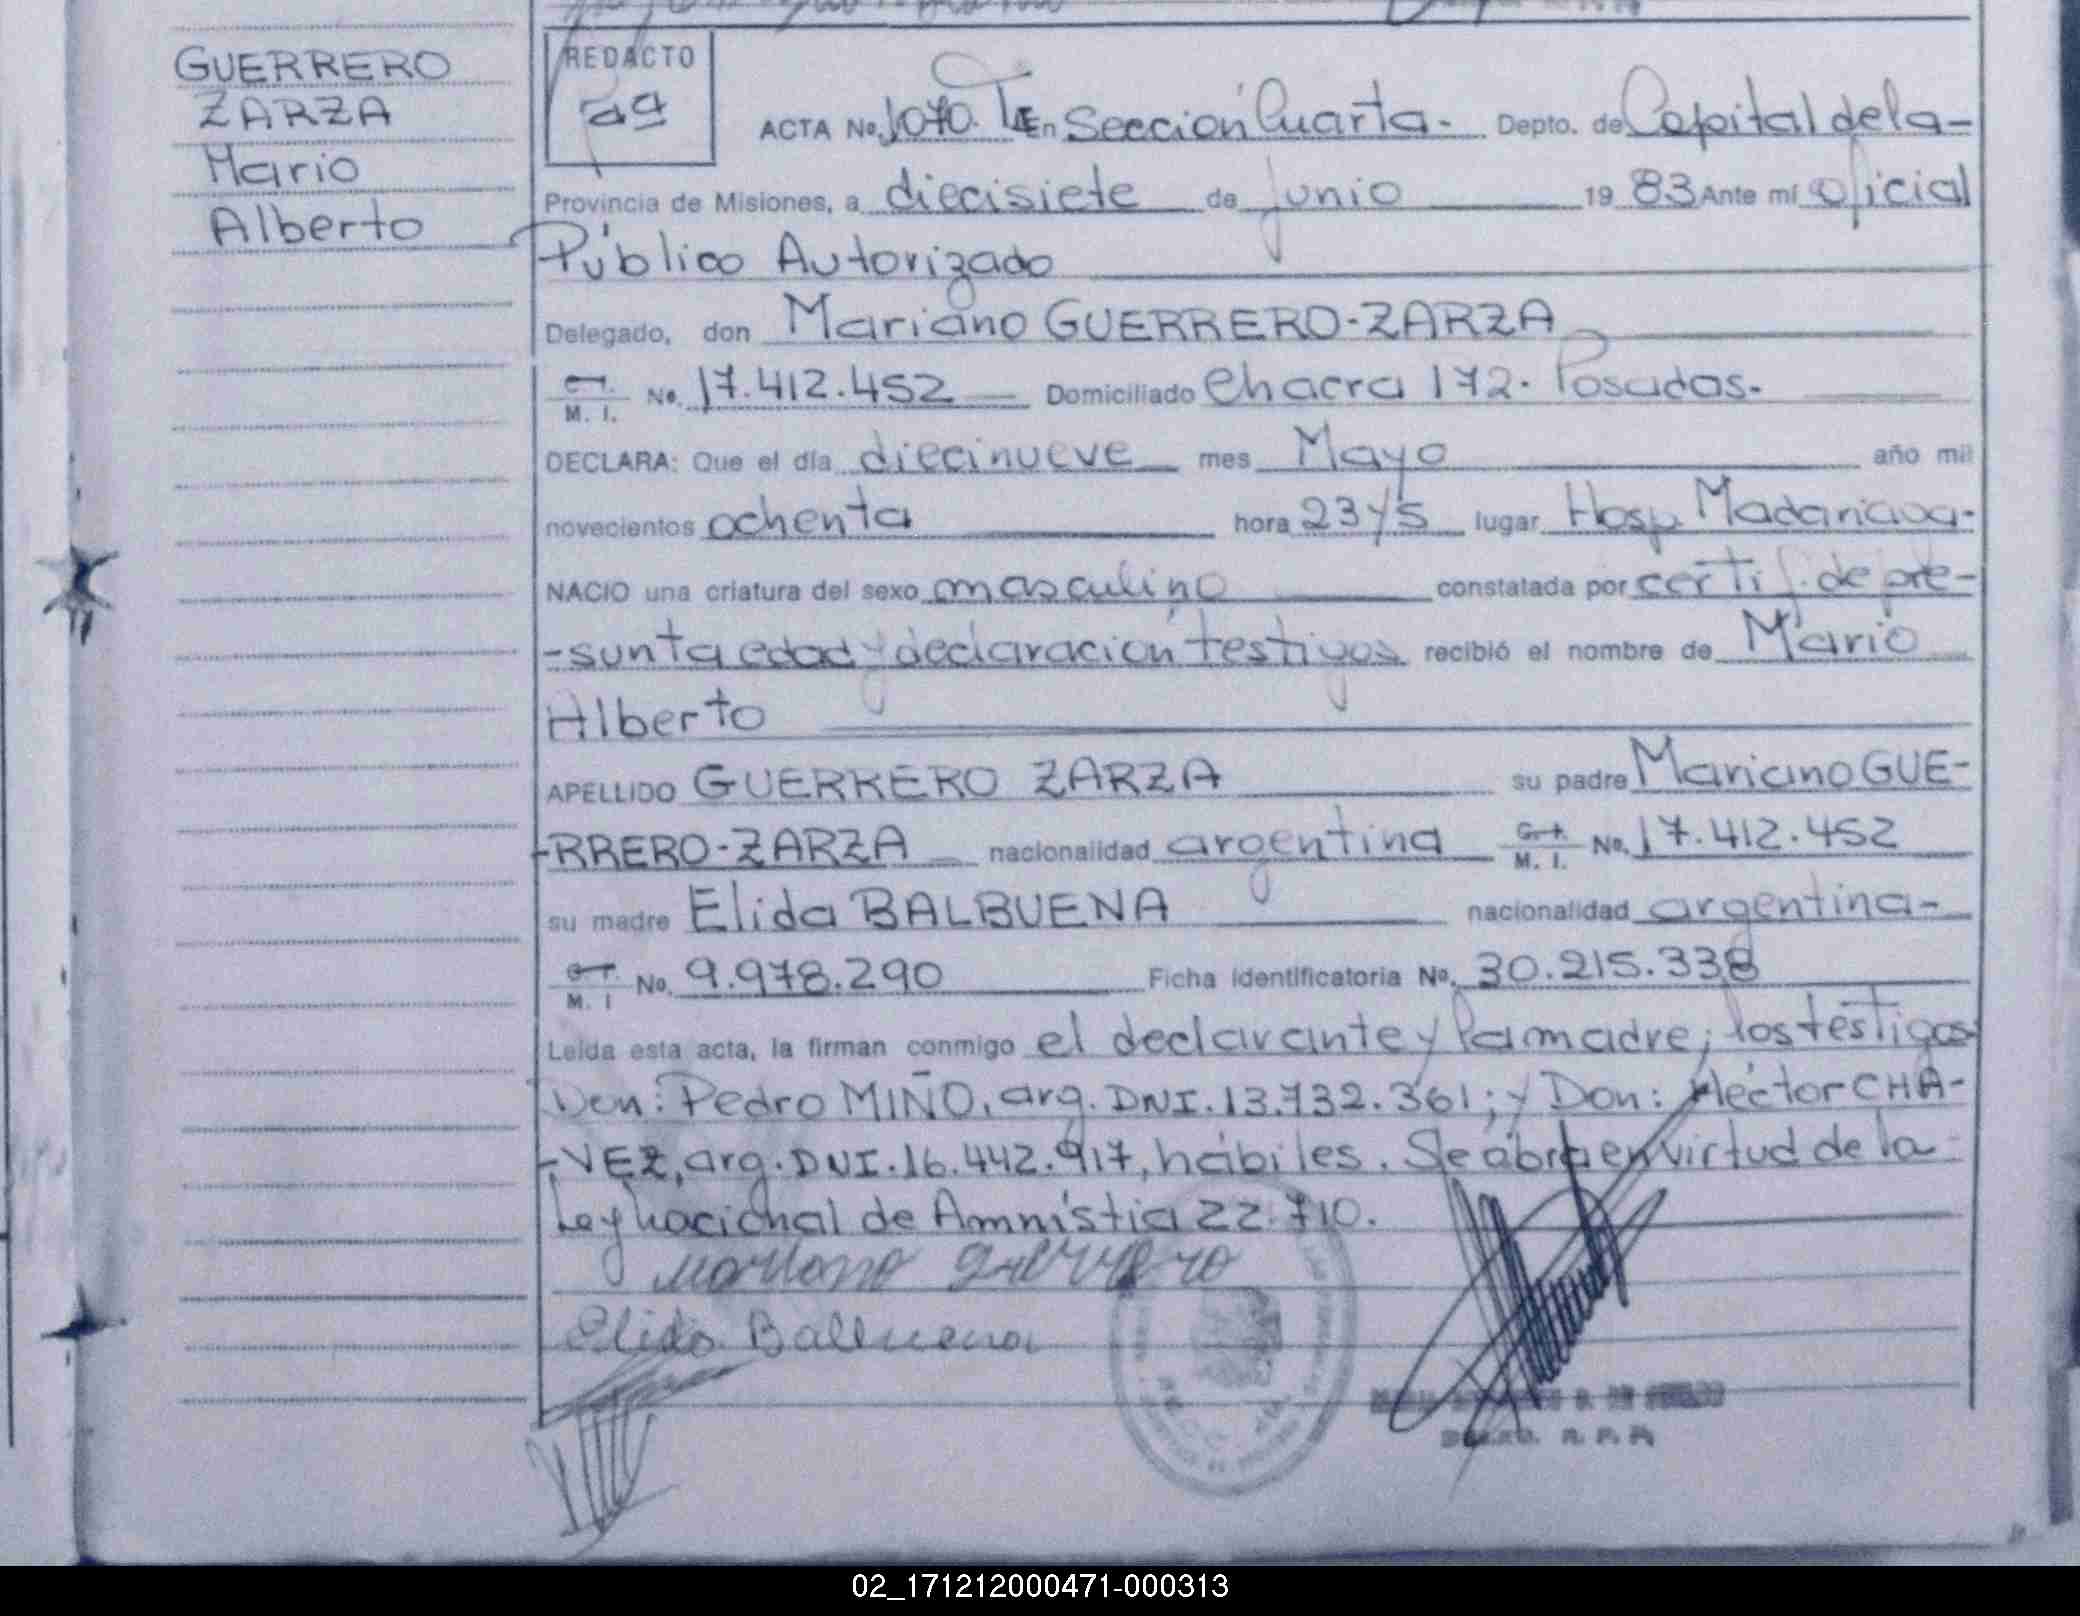 GUERRERO
ZARZA
Mario
Alberto
REDACTO
ACTA No. 1070. T En Sección Cuarta- Depto. de Capital de la-
Provincia de Misiones, a diecisiete de junio 1983 Ante mí oficial
Público Autorizado
Delegado, don Mariano GUERRERO-ZARZA
M. I. No. 17.412.452 Domiciliado Chacra 172. Posadas.
DECLARA: Que el día diecinueve mes Mayo año mil
novecientos ochenta hora 23 y 5 lugar Hosp. Madariaga.
NACIO una criatura del sexo masculino constatada por certif. de pre-
-sunta edad y declaración testigos recibió el nombre de Mario
Alberto
APELLIDO GUERRERO ZARZA su padre Mariano GUE-
-RRERO-ZARZA nacionalidad argentina M. I. No. 17.412.452
su madre Elida BALBUENA nacionalidad argentina-
M. I No. 9.978.290 Ficha identificatoria No. 30.215.338
Leída esta acta, la firman conmigo el declarante y la madre; los testigos
Don: Pedro MIÑO, arg. DNI. 13.732.361; y Don: Héctor CHA-
-VEZ, arg. DNI. 16.442.917, hábiles. Se abre en virtud de la
Ley nacional de Amnistia 22.710.
Mariano Guerrero
Elida Balbuena
02_171212000471-000313